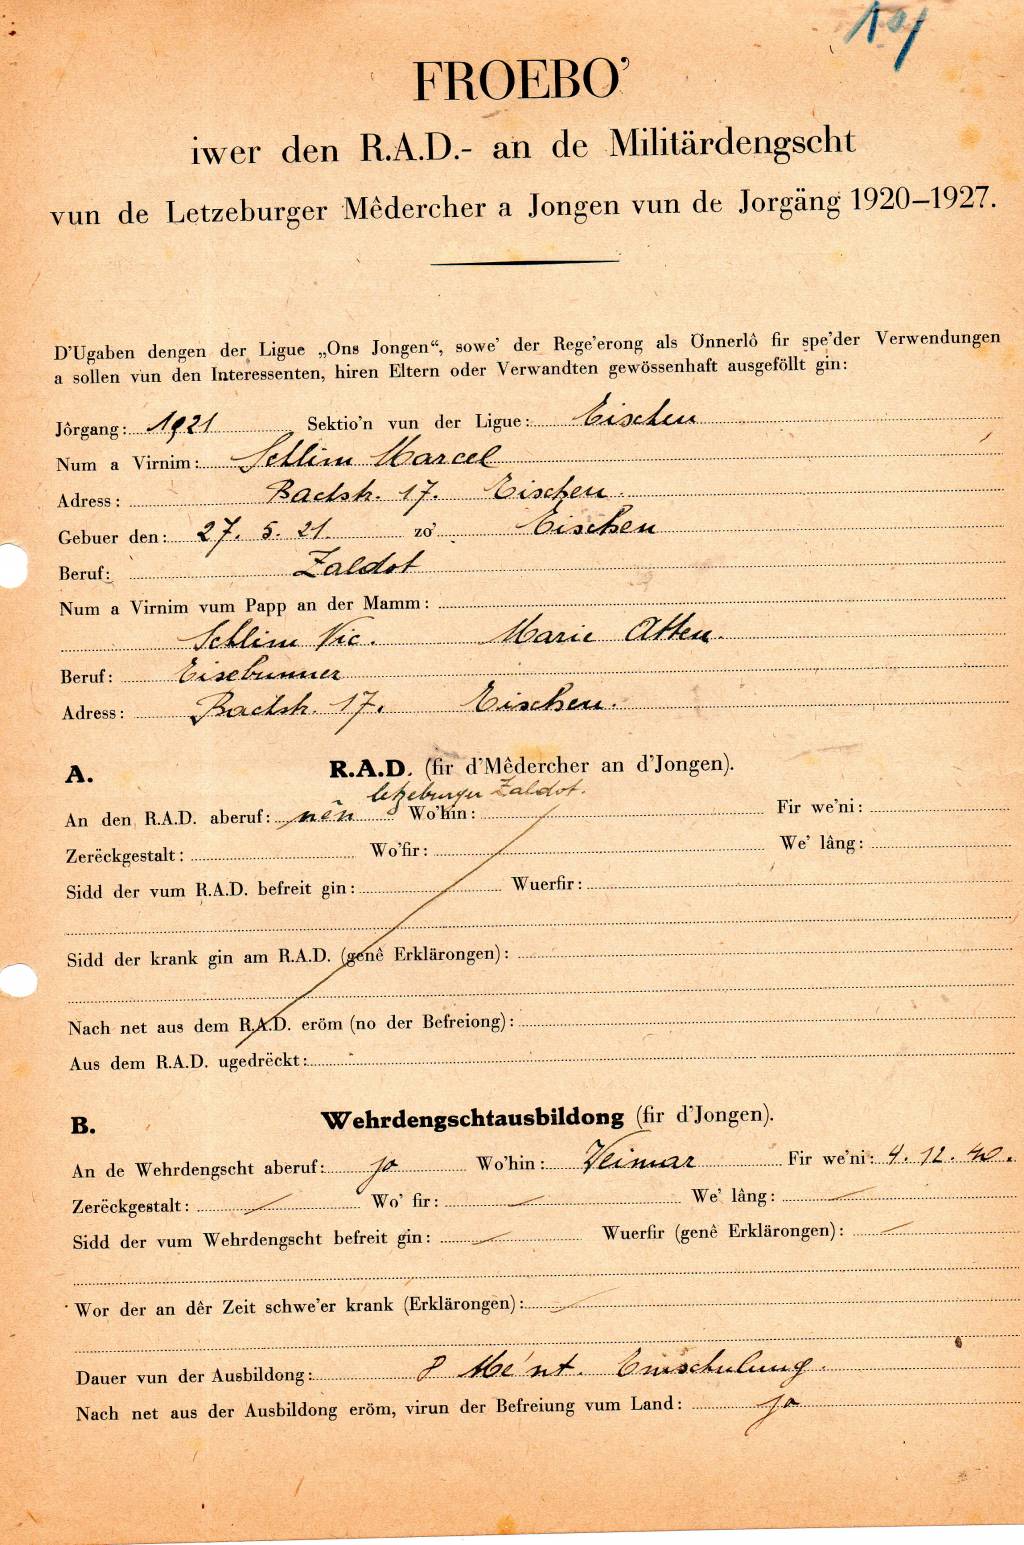 FROEBO'
iwer den R.A.D.- an de Militärdengscht
vun de Letzeburger Mêdercher a Jongen vun de Jorgäng 1920–1927.
D'Ugaben dengen der Ligue „Ons Jongen“, sowe' der Rege'erong als Önnerlô fir spe'der Verwendungen
a sollen vun den Interessenten, hiren Eltern oder Verwandten gewössenhaft ausgeföllt gin:
Jôrgang: 1921 Sektio'n vun der Ligue: Eischen
Num a Virnim: Schlim Marcel
Adress: Bachstr. 17. Eischen.
Gebuer den: 27. 5. 21. zo' Eischen
Beruf: Zaldot
Num a Virnim vum Papp an der Mamm:
Schlim Vic. Marie Atten.
Beruf: Eisebunner
Adress: Bachstr. 17. Eischen.
A. R.A.D. (fir d'Mêdercher an d'Jongen).
letzeburger Zaldot.
An den R.A.D. aberuf: nên Wo'hin: Fir we'ni:
Zerëckgestalt: Wo'fir: We' lâng:
Sidd der vum R.A.D. befreit gin: Wuerfir:
Sidd der krank gin am R.A.D. (genê Erklärongen):
Nach net aus dem R.A.D. eröm (no der Befreiong):
Aus dem R.A.D. ugedrëckt:
B. Wehrdengschtausbildong (fir d'Jongen).
An de Wehrdengscht aberuf: jo Wo'hin: Weimar Fir we'ni: 4. 12. 40.
Zerëckgestalt: / Wo' fir: / We' lâng: /
Sidd der vum Wehrdengscht befreit gin: / Wuerfir (genê Erklärongen): /
Wor der an dêr Zeit schwe'er krank (Erklärongen): /
Dauer vun der Ausbildong: 8 Me'nt. Emschulung.
Nach net aus der Ausbildong eröm, virun der Befreiung vum Land: jo